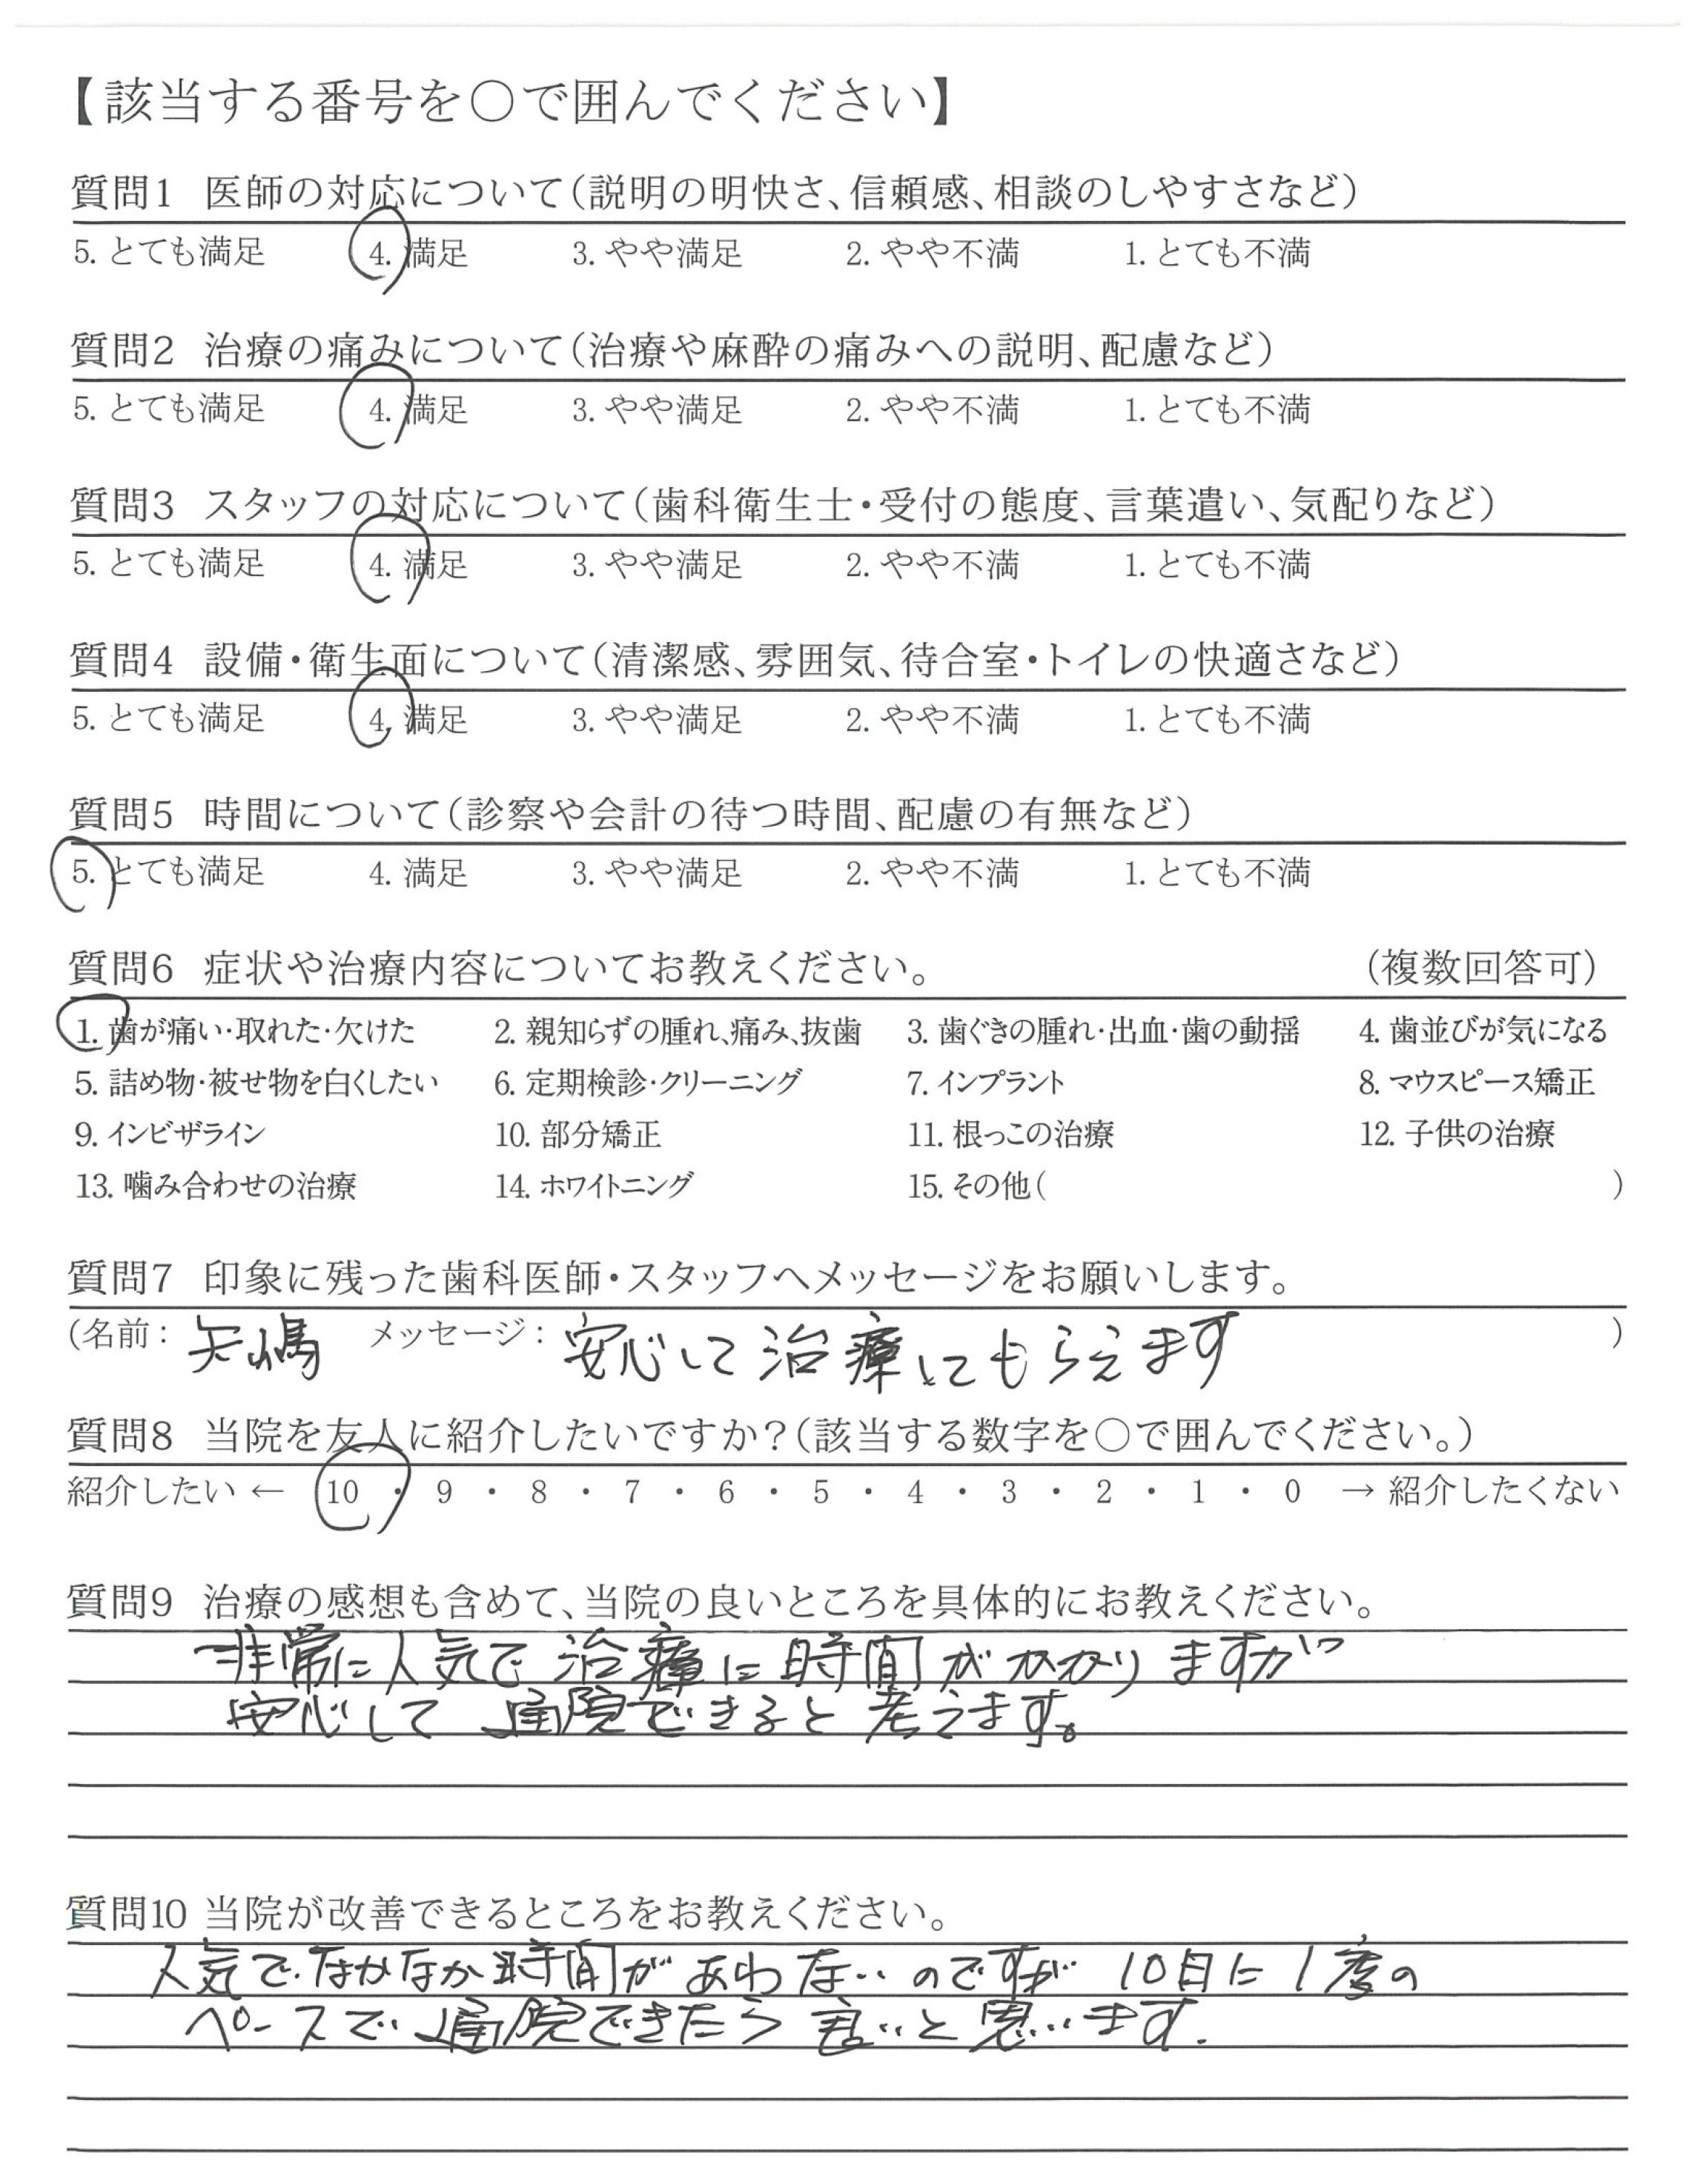 【該当する番号を○で囲んでください】
質問1 医師の対応について(説明の明快さ、信頼感、相談のしやすさなど)
5. とても満足 4. 満足 3. やや満足 2. やや不満 1. とても不満
質問2 治療の痛みについて(治療や麻酔の痛みへの説明、配慮など)
5. とても満足 4. 満足 3. やや満足 2. やや不満 1. とても不満
質問3 スタッフの対応について(歯科衛生士・受付の態度、言葉遣い、気配りなど)
5. とても満足 4. 満足 3. やや満足 2. やや不満 1. とても不満
質問4 設備・衛生面について(清潔感、雰囲気、待合室・トイレの快適さなど)
5. とても満足 4. 満足 3. やや満足 2. やや不満 1. とても不満
質問5 時間について(診察や会計の待つ時間、配慮の有無など)
5. とても満足 4. 満足 3. やや満足 2. やや不満 1. とても不満
質問6 症状や治療内容についてお教えください。 (複数回答可)
1. 歯が痛い・取れた・欠けた 2. 親知らずの腫れ、痛み、抜歯 3. 歯ぐきの腫れ・出血・歯の動揺 4. 歯並びが気になる
5. 詰め物・被せ物を白くしたい 6. 定期検診・クリーニング 7. インプラント 8. マウスピース矯正
9. インビザライン 10. 部分矯正 11. 根っこの治療 12. 子供の治療
13. 噛み合わせの治療 14. ホワイトニング 15. その他( )
質問7 印象に残った歯科医師・スタッフへメッセージをお願いします。
(名前: 矢嶋 メッセージ: 安心して治療してもらえます )
質問8 当院を友人に紹介したいですか?(該当する数字を○で囲んでください。)
紹介したい ← 10 ・ 9 ・ 8 ・ 7 ・ 6 ・ 5 ・ 4 ・ 3 ・ 2 ・ 1 ・ 0 → 紹介したくない
質問9 治療の感想も含めて、当院の良いところを具体的にお教えください。
非常に人気で治療に時間がかかりますが
安心して通院できると考えます。
質問10 当院が改善できるところをお教えください。
人気でなかなか時間があわないのですが 10日に1度の
ペースで通院できたら良いと思います.